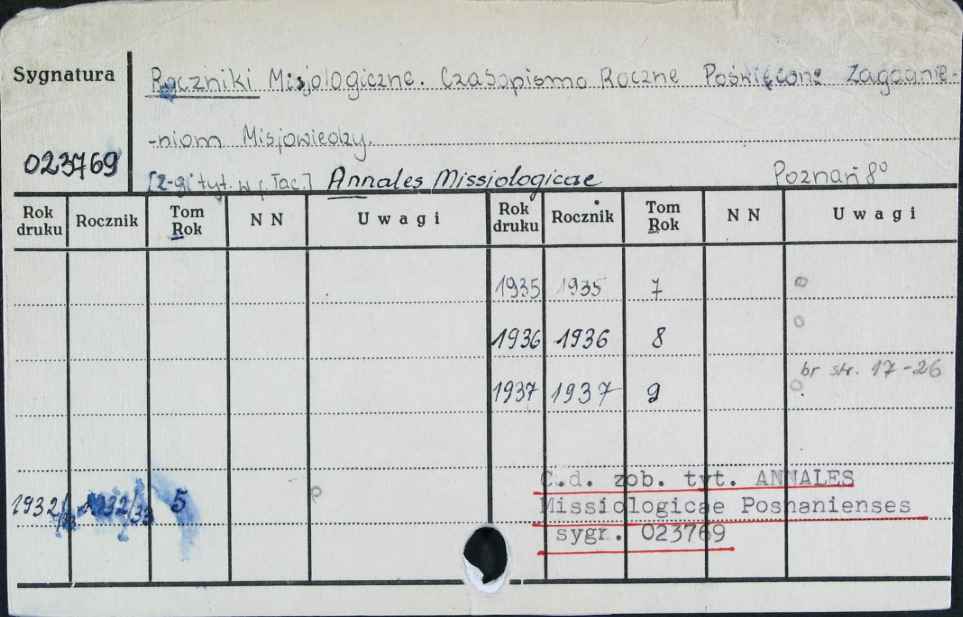 Sygnatura
Roczniki Misjologiczne. Czasopismo Roczne Poświęcone Zagadnie-
-niom Misjowiedzy.
023769
[2-gi tyt. w j. łac.] Annales Missiologicae Poznań 8°
Rok druku Rocznik Tom Rok NN Uwagi Rok druku Rocznik Tom Rok NN Uwagi
1935 1935 7
1936 1936 8
br str. 17-26
1937 1937 9
C.d. zob. tyt. ANNALES
1932/33 1932/33 5
Missiologicae Posnanienses
sygn. 023769